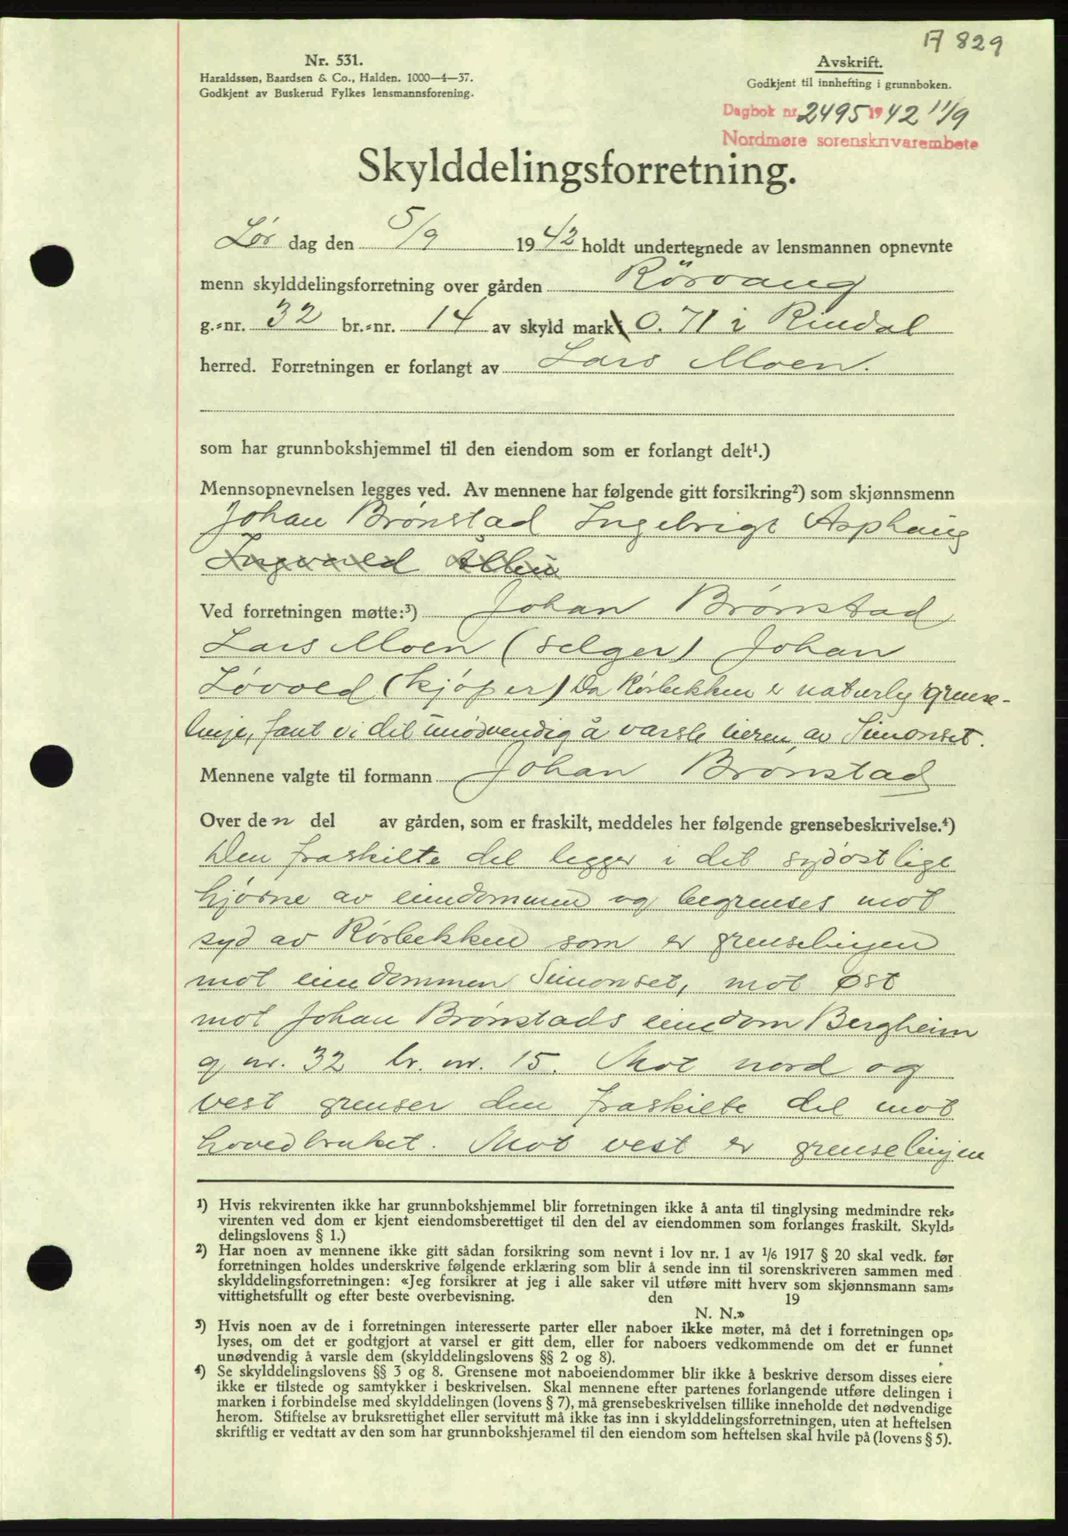 A 829
Nr. 531.
Haraldssøn, Baardsen & Co., Halden. 1000—4—37.
Godkjent av Buskerud Fylkes lensmannsforening.
Avskrift.
Godkjent til innhefting i grunnboken.
Dagbok nr. 2495 1942 11/9
Nordmøre sorenskrivarembete
Skylddelingsforretning.
Lør dag den 5/9 1942 holdt undertegnede av lensmannen opnevnte
menn skylddelingsforretning over gården Rörvang
g.-nr. 32 br.-nr. 14 av skyld mark 0.71 i Rindal
herred. Forretningen er forlangt av Lars Moen.
som har grunnbokshjemmel til den eiendom som er forlangt delt¹.)
Mennsopnevnelsen legges ved. Av mennene har følgende gitt forsikring²) som skjønnsmenn
Johan Brønstad Ingebrigt Asphaug
Ingvald
Ved forretningen møtte:³) Johan Brønstad
Lars Moen (selger) Johan
Løvold (kjøper) Da Rørbekken er naturlig grense-
linje, fant vi det unødvendig å varsle eieren av Simonset.
Mennene valgte til formann Johan Brønstad
Over den del av gården, som er fraskilt, meddeles her følgende grensebeskrivelse.⁴)
Den fraskilte del legger i det sydøstlige
hjørne av eiendommen og begrenses mot
syd av Rørbekken som er grenselinjen
mot eiendommen Simonset, mot øst
mot Johan Brønstads eiendom Bergheim
g nr. 32 br. nr. 15. Mot nord og
vest grenser den fraskilte del mot
hovedbruket. Mot vest er grenselinjen
¹) Hvis rekvirenten ikke har grunnbokshjemmel blir forretningen ikke å anta til tinglysing medmindre rek-
virenten ved dom er kjent eiendomsberettiget til den del av eiendommen som forlanges fraskilt. Skyld-
delingslovens § 1.)
²) Har noen av mennene ikke gitt sådan forsikring som nevnt i lov nr. 1 av 1/6 1917 § 20 skal vedk. før
forretningen holdes underskrive følgende erklæring som blir å sende inn til sorenskriveren sammen med
skylddelingsforretningen: «Jeg forsikrer at jeg i alle saker vil utføre mitt hverv som skjønnsmann sam-
vittighetsfullt og efter beste overbevisning. den 19
N. N.»
³) Hvis noen av de i forretningen interesserte parter eller naboer ikke møter, må det i forretningen op-
lyses, om det er godtgjort at varsel er gitt dem, eller for naboers vedkommende om det er funnet
unødvendig å varsle dem (skylddelingslovens §§ 2 og 8).
⁴) Se skylddelingslovens §§ 3 og 8. Grensene mot naboeiendommer blir ikke å beskrive dersom disses eiere
ikke er tilstede og samtykker i beskrivelsen. Skal mennene efter partenes forlangende utføre delingen i
marken i forbindelse med skylddelingen (lovens § 7), må grensebeskrivelsen tillike inneholde det nødvendige
herom. Stiftelse av bruksrettighet eller servitutt må ikke tas inn i skylddelingsforretningen, uten at heftelsen
skriftlig er vedtatt av den som har grunnbokshjemmel til den eiendom som heftelsen skal hvile på (lovens § 5).